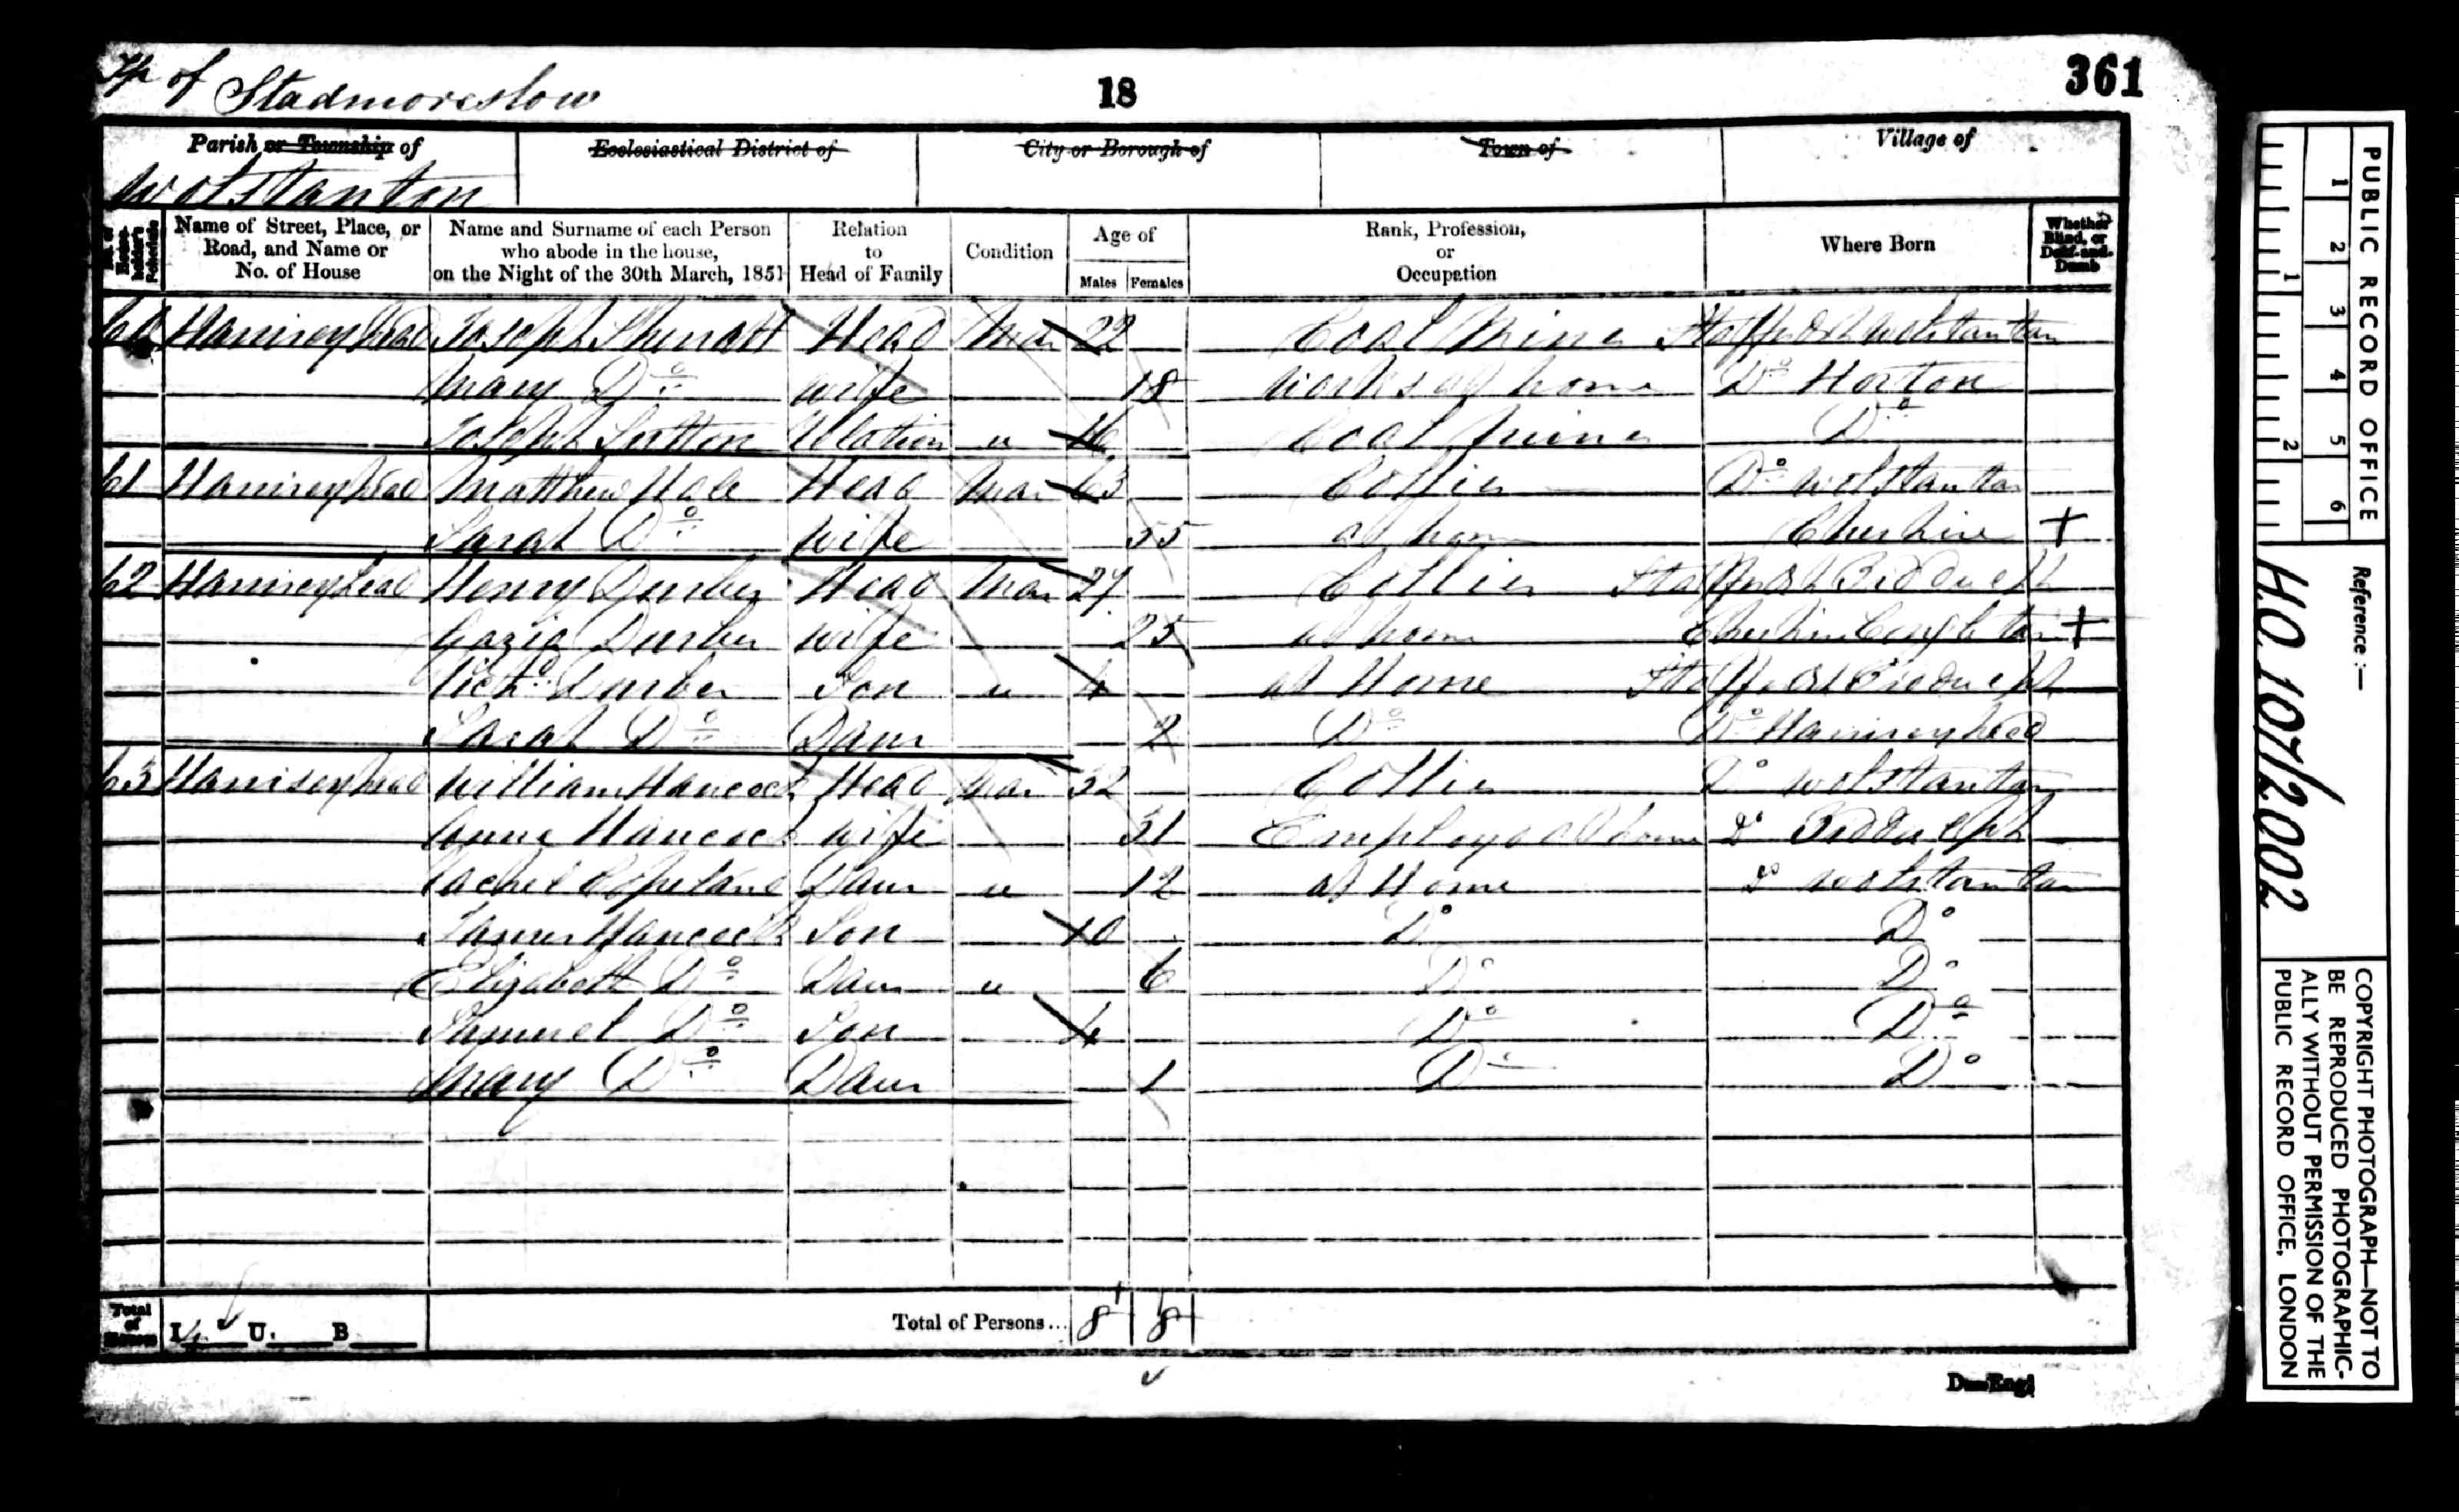 Tp of Stadmoreslow
18
361
Parish or Township of
Wolstanton
Ecclesiastical District of
City or Borough of
Town of
Village of
Name of Street, Place, or Road, and Name or No. of House
Name and Surname of each Person who abode in the house, on the Night of the 30th March, 1851
Relation to Head of Family
Condition
Age of
Males Females
Rank, Profession, or Occupation
Where Born
Whether Blind, or Deaf-and-Dumb
60 Harriseyhead Joseph Head Mar 22 Coal Miner Staffordsh Wolstanton
Mary Do wife 18 works at home Do Horton
Joseph Sutton Relation u 16 Coal Miner Do
61 Harriseyhead Matthew Hale Head Mar 63 Collier Do Wolstanton
Sarah Do wife 55 at home Cheshire +
62 Harriseyhead Henry Durber Head Mar 27 Collier Staffordsh Biddulph
Durber wife 25 at home Cheshire Congleton +
Richd Durber Son u 4 at Home Staffordsh Biddulph
Sarah Do Daur 2 Do Do Harriseyhead
63 Harriseyhead William Hancock Head Mar 32 Collier Do Wolstanton
Anne Hancock wife 31 Employd at home Do Biddulph
Rachel Copeland Daur u 12 at Home Do Wolstanton
James Hancock Son 10 Do Do
Elizabeth Do Daur u 6 Do Do
Samuel Do Son 4 Do Do
Mary Do Daur 1 Do Do
Total of Houses
I 4 U. B
Total of Persons... 8 8
PUBLIC RECORD OFFICE
1 2 3 4 5 6
1 2
Reference :—
H.O. 107/2002
COPYRIGHT PHOTOGRAPH—NOT TO BE REPRODUCED PHOTOGRAPHIC-ALLY WITHOUT PERMISSION OF THE PUBLIC RECORD OFFICE, LONDON